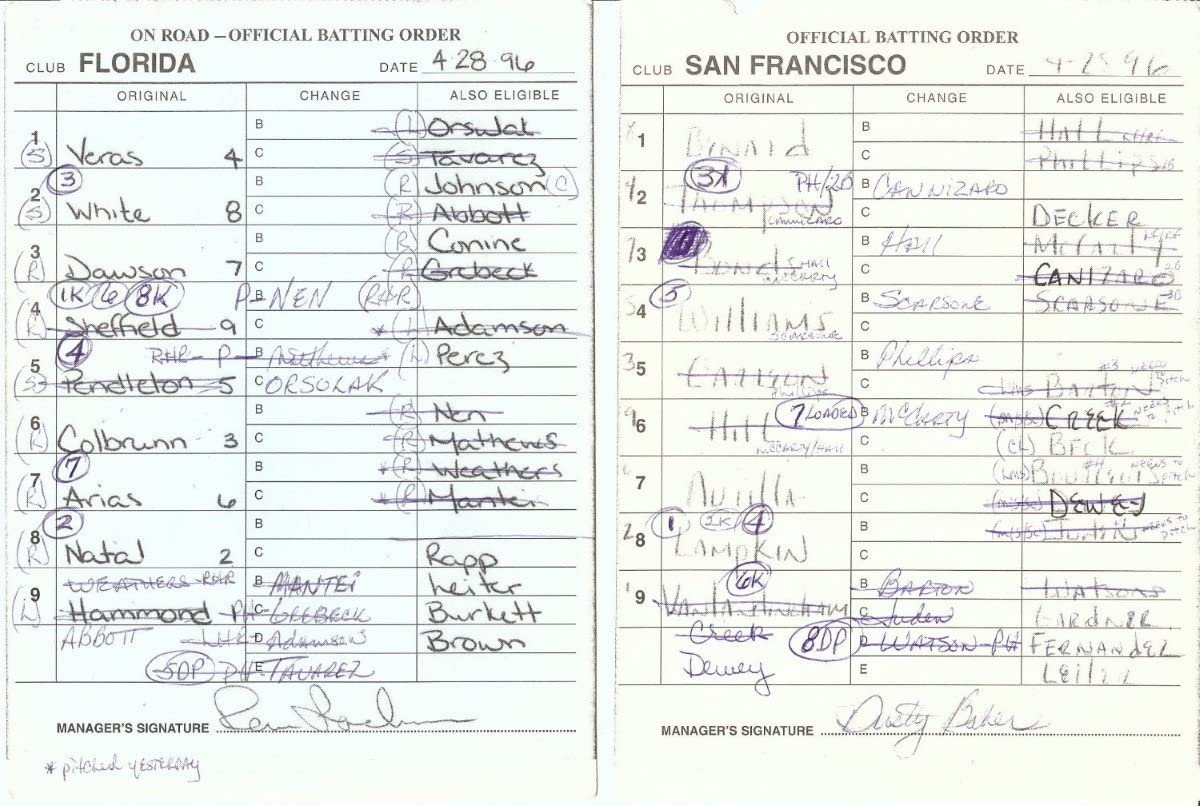 ON ROAD – OFFICIAL BATTING ORDER
CLUB FLORIDA DATE 4-28-96
ORIGINAL CHANGE ALSO ELIGIBLE
B (L) Orsulak
1 (S) Veras 4 C (S) Tavarez
3 B (R) Johnson (C)
2 (S) White 8 C (R) Abbott
B (R) Conine
3 (R) Dawson 7 C (R) Grebeck
1K 6 8K P B NEN (RHR)
4 (R) Sheffield 9 C * (L) Adamson
4 RHR - P - B Matthews * (L) Perez
5 (S) Pendleton 5 C ORSULAK
B (R) Nen
6 (R) Colbrunn 3 C (R) Mathews
7 B * (R) Weathers
7 (R) Arias 6 C * (R) Mantei
2 B
8 (R) Natal 2 C Rapp
WEATHERS RHR B MANTEI Leiter
9 (L) Hammond PH C GREBECK Burkett
ABBOTT LHR D Adamson Brown
5DP PH E TAVAREZ
MANAGER'S SIGNATURE
* pitched YESTERDAY
OFFICIAL BATTING ORDER
CLUB SAN FRANCISCO DATE 4-28-96
ORIGINAL CHANGE ALSO ELIGIBLE
1 B HALL
C Phillips
31 PH/2B B CANNIZARO
2 THOMPSON CANNIZARO C DECKER
B Hall McCarty
3 HALL McCARTY C CANIZARO 3B
5 B SCARSONE SCARSONE 3B
4 WILLIAMS SCARSONE C
B Phillips #3 NEEDS TO PITCH
5 Phillips C BARTON
7 LOADED B McCARTY CREEK
6 Hill McCARTY/HALL C BECK
B #4 NEEDS TO PITCH
7 C DEWEY
1 2K 4 B JUDEN NEEDS TO PITCH
8 LAMPKIN C
6K B BARTON WATSON
9 VANLANDINGHAM C Juden GARDNER
Creek 8DP D WATSON PH FERNANDEZ
Dewey E LEITER
MANAGER'S SIGNATURE Dusty Baker